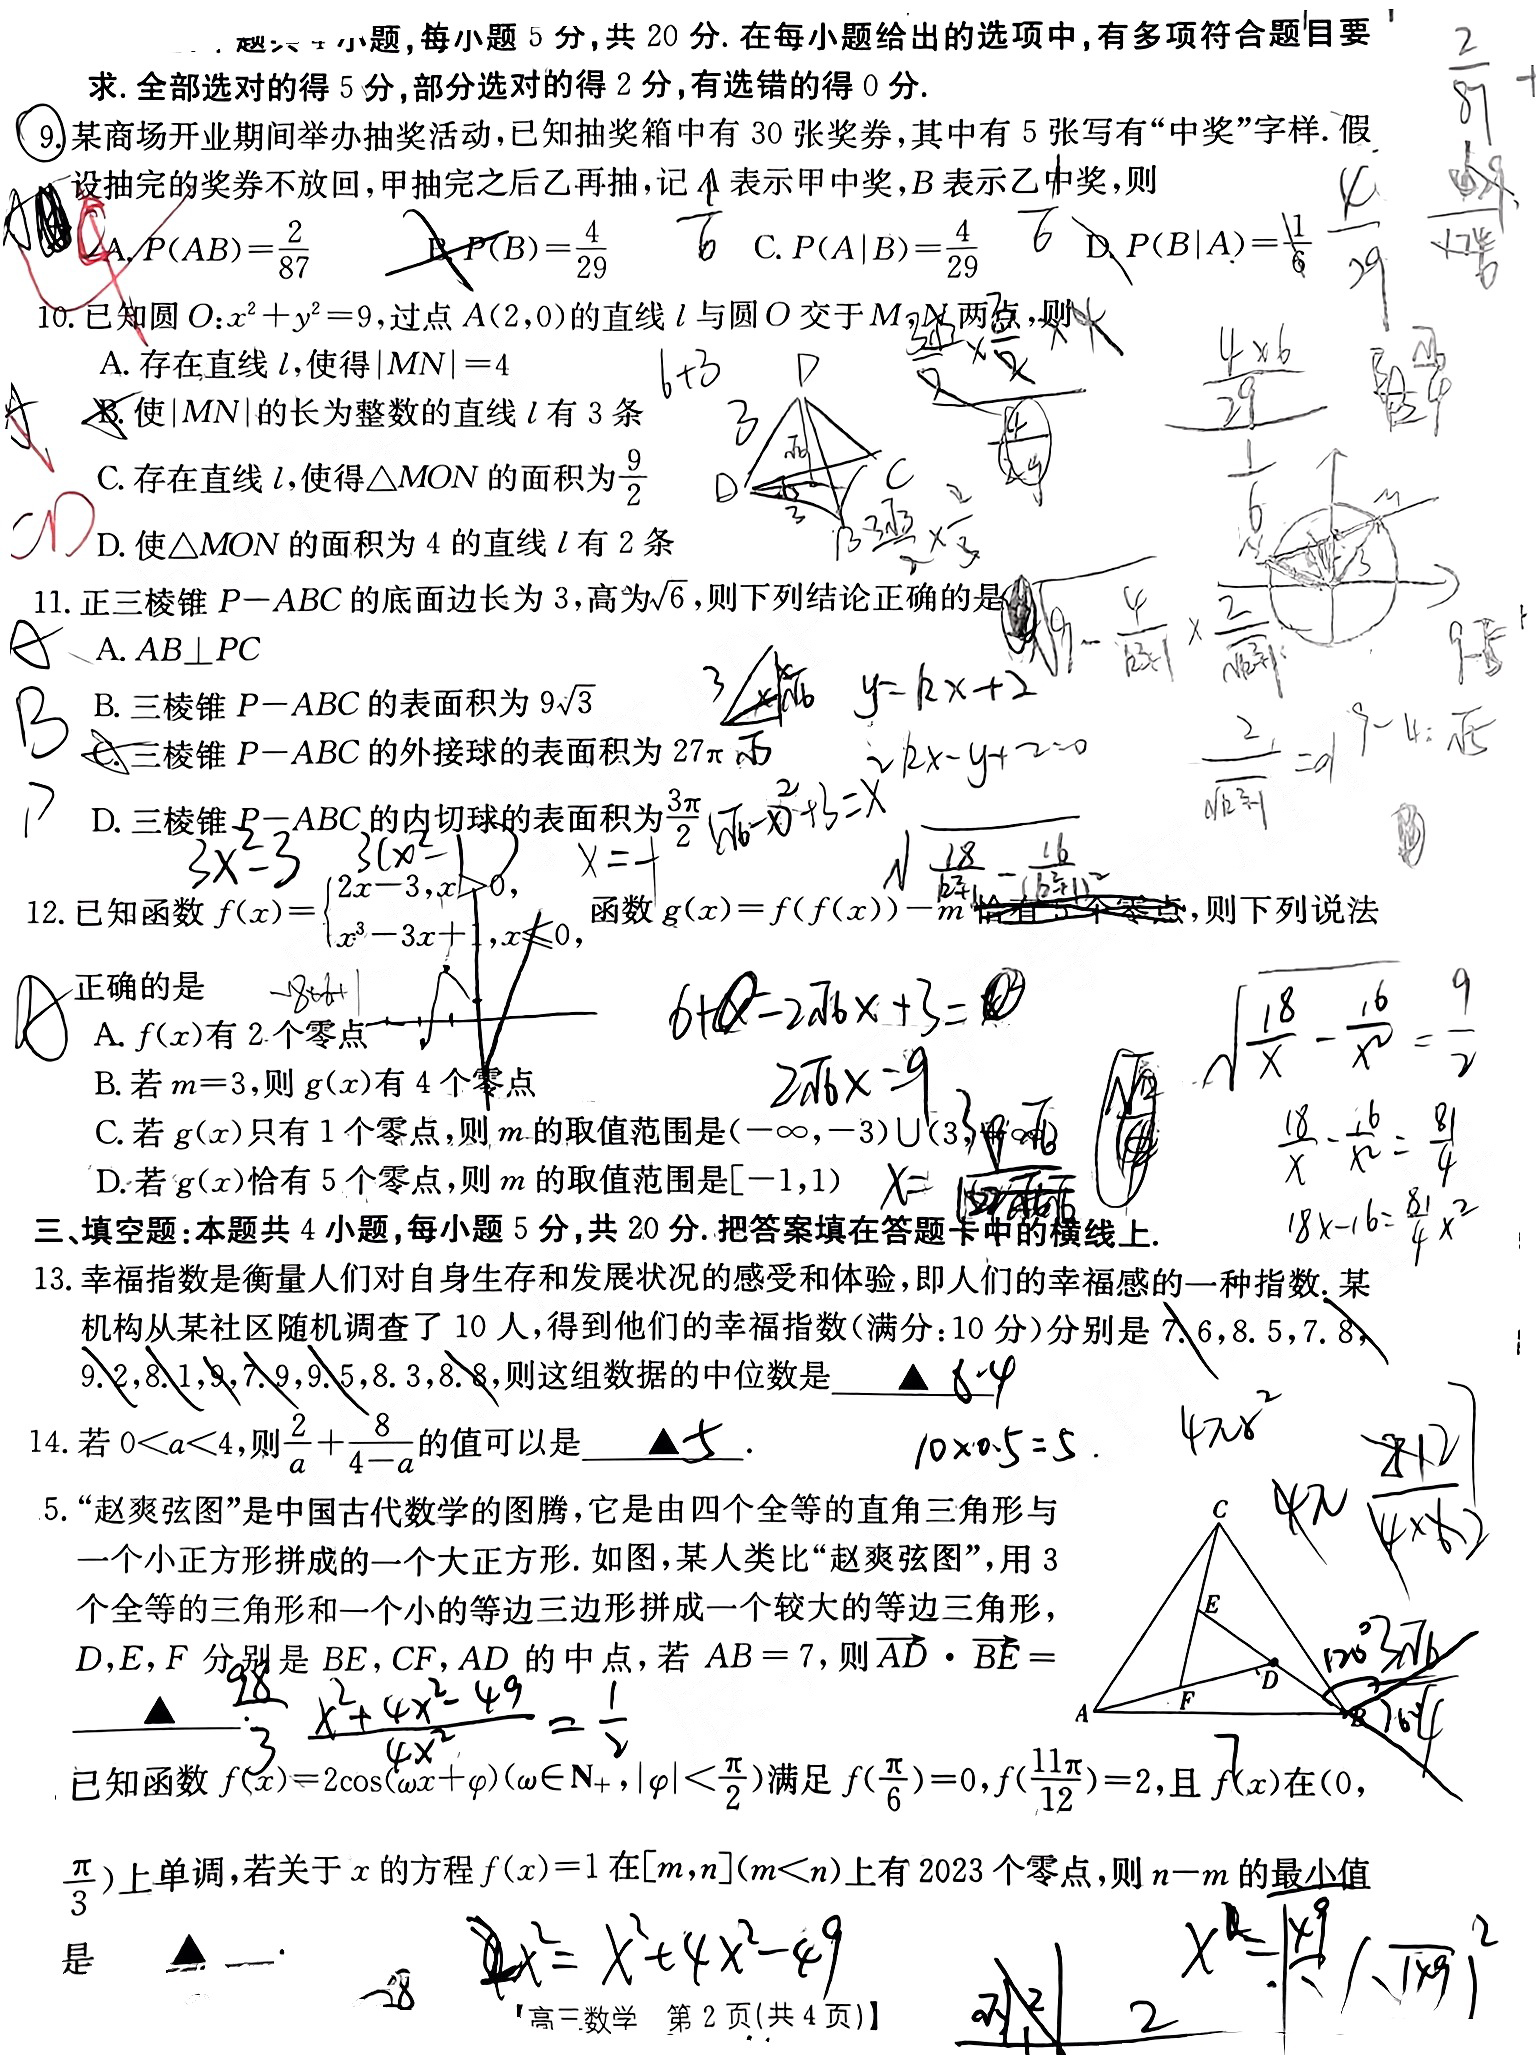 小题,每小题 5 分,共 20 分. 在每小题给出的选项中,有多项符合题目要
求. 全部选对的得 5 分,部分选对的得 2 分,有选错的得 0 分.
9. 某商场开业期间举办抽奖活动,已知抽奖箱中有 30 张奖券,其中有 5 张写有“中奖”字样. 假
设抽完的奖券不放回,甲抽完之后乙再抽,记 A 表示甲中奖,B 表示乙中奖,则
A. P(AB)=2/87 B. P(B)=4/29 C. P(A|B)=4/29 D. P(B|A)=1/6
10. 已知圆 O:x²+y²=9,过点 A(2,0)的直线 l 与圆 O 交于 M,N 两点,则
A. 存在直线 l,使得|MN|=4
6+3
B. 使|MN|的长为整数的直线 l 有 3 条
C. 存在直线 l,使得△MON 的面积为9/2
D. 使△MON 的面积为 4 的直线 l 有 2 条
11. 正三棱锥 P-ABC 的底面边长为 3,高为√6,则下列结论正确的是
A. AB⊥PC
B. 三棱锥 P-ABC 的表面积为 9√3
y=kx+2
C. 三棱锥 P-ABC 的外接球的表面积为 27π
kx-y+2=0
D. 三棱锥 P-ABC 的内切球的表面积为3π/2
(√6-x)²+3=x²
3x²-3 3(x²-1)
12. 已知函数 f(x)={2x-3,x>0, x³-3x+1,x≤0, 函数 g(x)=f(f(x))-m 恰有 5 个零点,则下列说法
正确的是
A. f(x)有 2 个零点
B. 若 m=3,则 g(x)有 4 个零点
2√6x=9
C. 若 g(x)只有 1 个零点,则 m 的取值范围是(-∞,-3)∪(3,+∞)
18/x-16/x²=81/4
D. 若 g(x)恰有 5 个零点,则 m 的取值范围是[-1,1)
18x-16=81/4x²
三、填空题:本题共 4 小题,每小题 5 分,共 20 分. 把答案填在答题卡中的横线上.
13. 幸福指数是衡量人们对自身生存和发展状况的感受和体验,即人们的幸福感的一种指数. 某
机构从某社区随机调查了 10 人,得到他们的幸福指数(满分:10 分)分别是 7.6,8.5,7.8,
9.2,8.1,9,7.9,9.5,8.3,8.8,则这组数据的中位数是 ▲ 8.4
14. 若 0<a<4,则2/a+8/(4-a)的值可以是 ▲ 5 .
10×0.5=5.
5. “赵爽弦图”是中国古代数学的图腾,它是由四个全等的直角三角形与
一个小正方形拼成的一个大正方形. 如图,某人类比“赵爽弦图”,用 3
个全等的三角形和一个小的等边三边形拼成一个较大的等边三角形,
D,E,F 分别是 BE,CF,AD 的中点,若 AB=7,则AD·BE=
▲ .
98/3 (x²+4x²-49)/4x²=1/2
C
E
D
F
A
B
已知函数 f(x)=2cos(ωx+φ)(ω∈N₊,|φ|<π/2)满足 f(π/6)=0,f(11π/12)=2,且 f(x)在(0,
π/3)上单调,若关于 x 的方程 f(x)=1 在[m,n](m<n)上有 2023 个零点,则 n-m 的最小值
是 ▲ .
2x²=x²+4x²-49
【高三数学 第 2 页(共 4 页)】